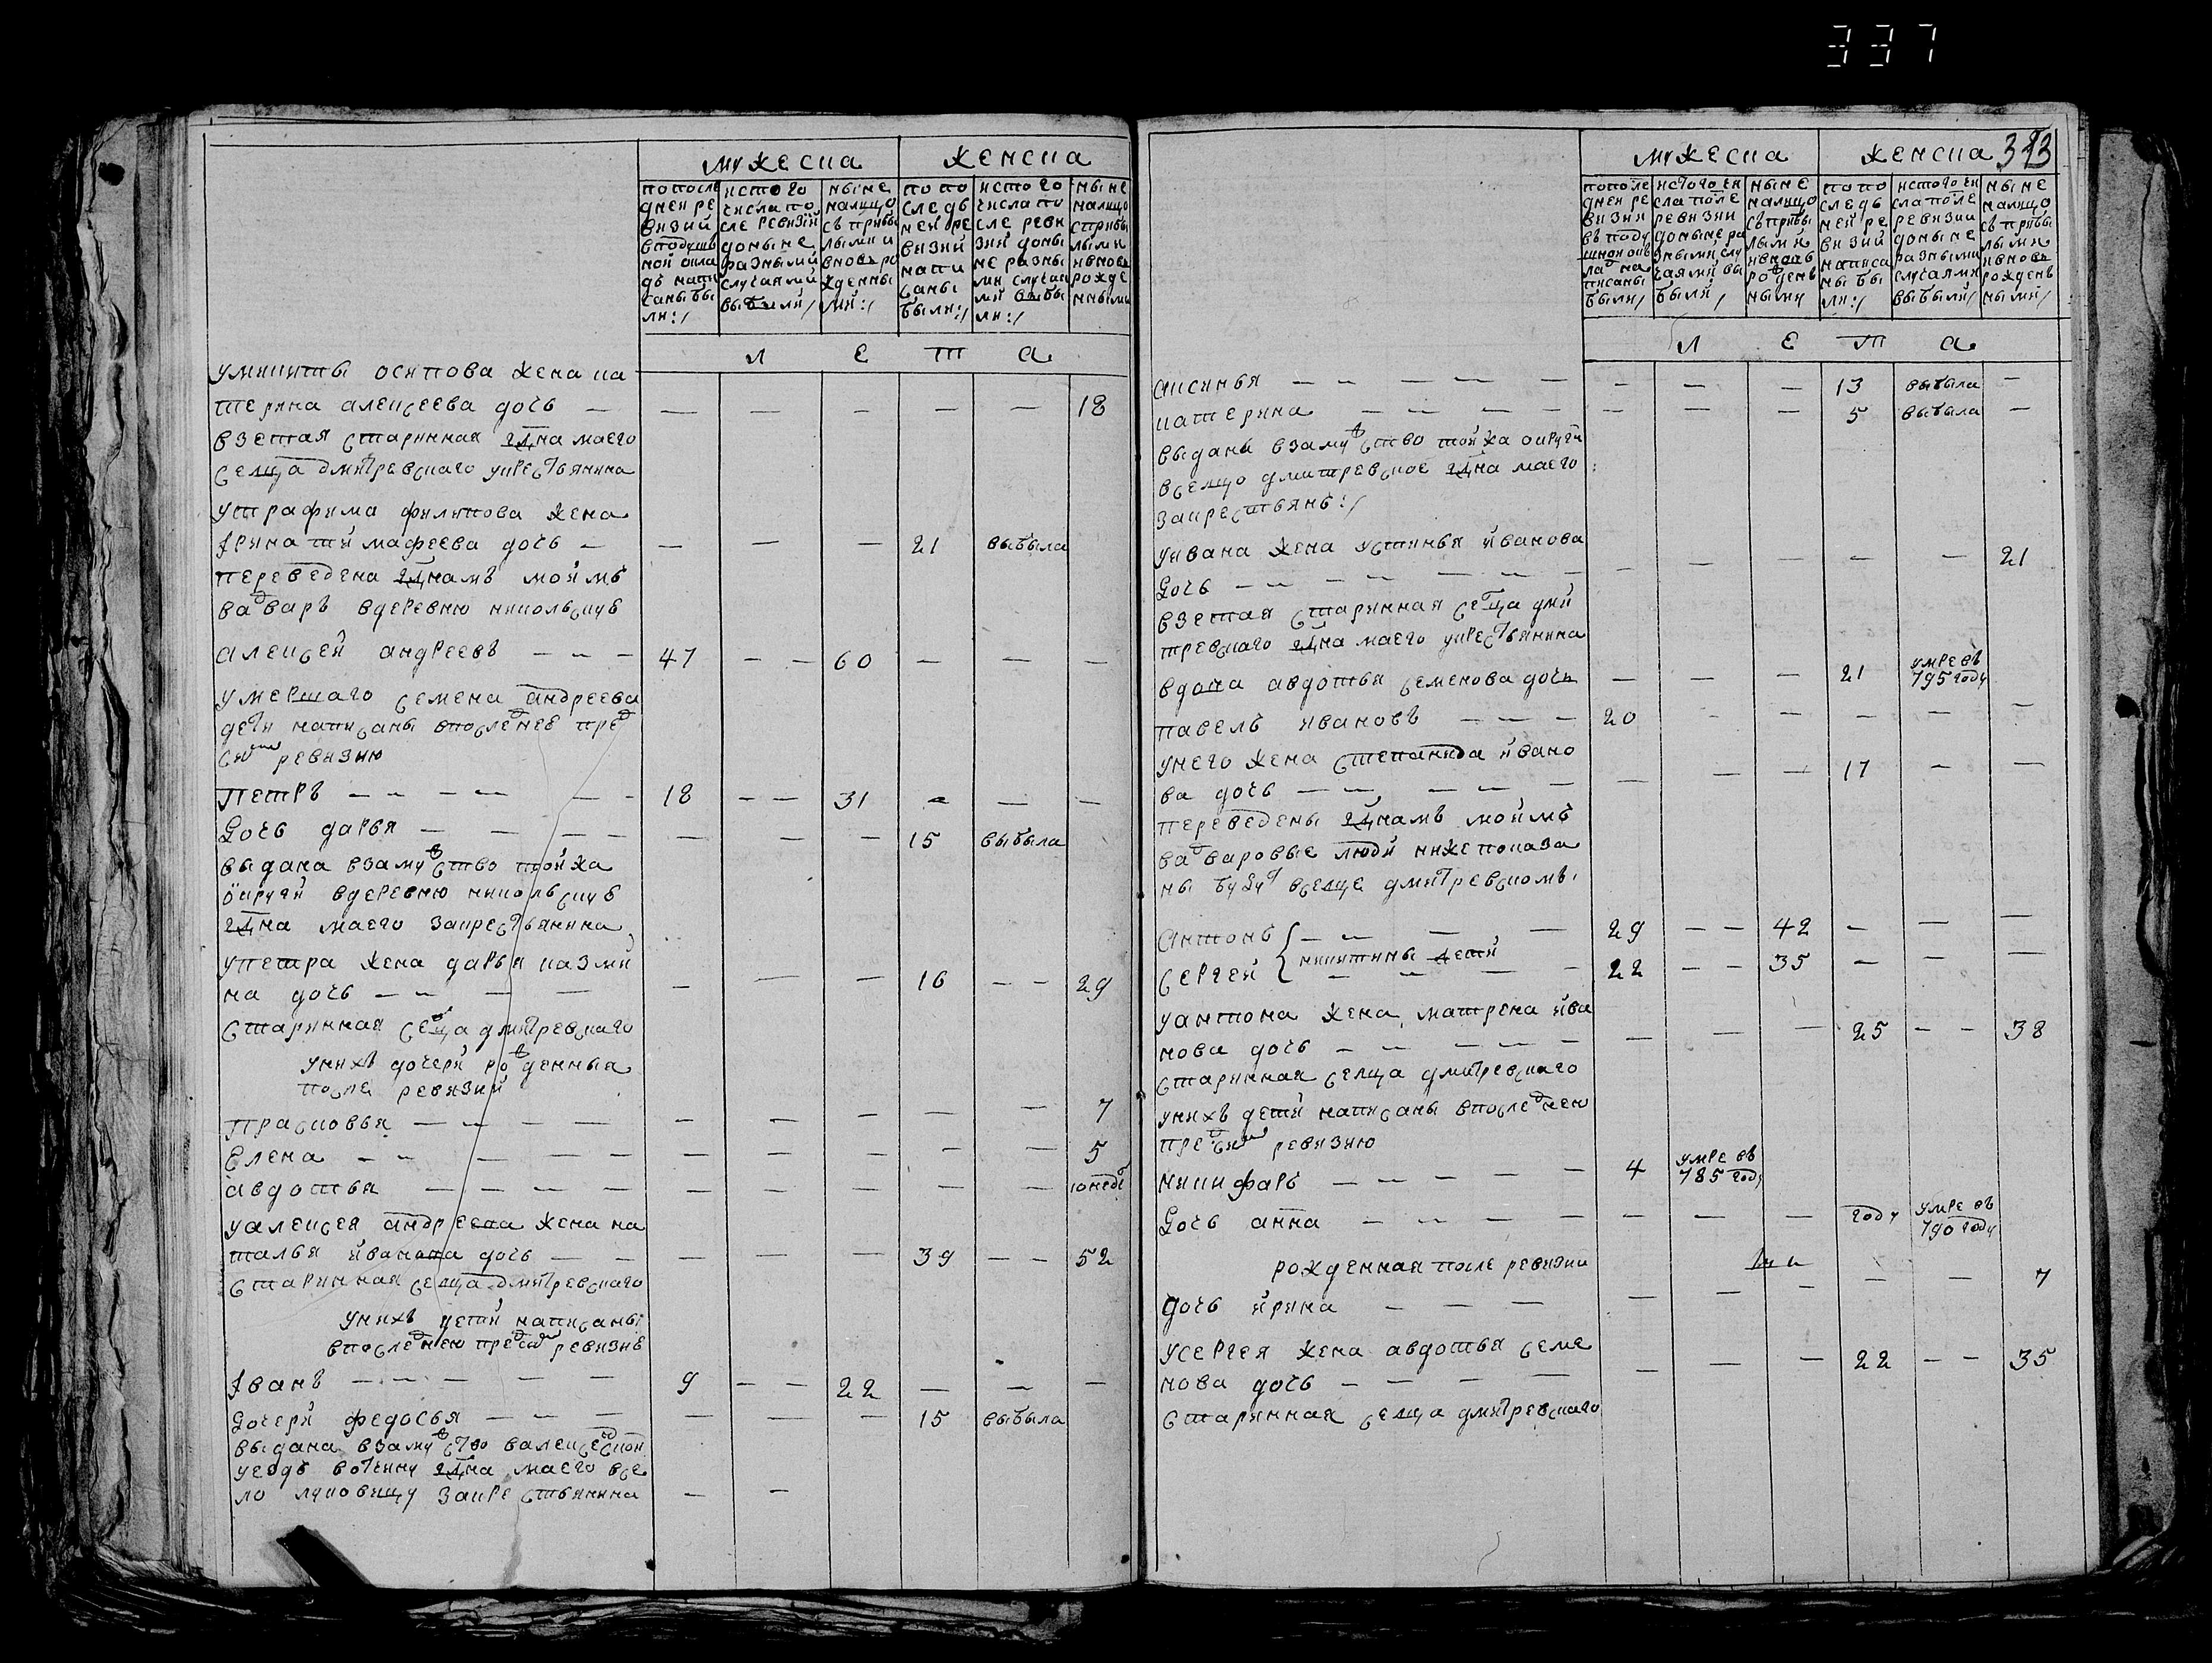 337
мужеска женска
попосле дней ре визий вподушь ной окла дъ напи саны бы ли:/
истого числа по сле ревизйй доныне разными случаями выбыли/
ныне налицо съ прибы лыми и вновъ ро жденны ми:/
по по следъ ней ре визий напи саны были:/
истого числа по сле реви зий доны не разны ми случаи ми выбы ли:/
ныне налицо сприбы лыми ивновъ рожде нными
л е т а
уникиты осипова жена ка
терина алексеева дочь — — — — — — 18
взетая старинная гдна маего
селца дмитревскаго укрестьянина
утрафима филипова жена
Ірина тимафеева дочь — — — — 21 выбыла
переведена гдномъ моимъ
ва дваръ вдеревню никольскуь
алексей андреевъ — — — 47 — — 60 — — —
умершаго семена андреева
дети написаны впоследнеь пред
сию ревизию
петръ — — — — 18 — — 31 — — —
Дочь дарья — — — — — — — 15 выбыла
выдана взамужство тойжа
округи вдеревню никольскуь
гдна маего закрестьянина
упетра жена дарья казми
на дочь — — — — — — — 16 — — 29
старинная селца дмитревскаго
унихъ дочери рожденныя
после ревизий
Прасковья — — — — — — — — — 7
Елена — — — — — — — — — 5
авдотья — — — — — — — — — 10 недь
уалексея андреева жена на
талья иванава дочь — — — — — 39 — — 52
старинная селца дмитревскаго
унихъ дети написаны
впоследнею предсию ревизиь
Іванъ — — — — — 9 — — 22 — — —
Дочери федосья — — — — — — 15 выбыла
выдана взамужство валексеской
уездъ вотчину гдна маего все
ло луковицу закрестьянина — —
мужеска женска 313
пополе дней ре визии въ поду шной окъ лад на писаны были/
истого чи сла поле ревизии доныне ра зными слу чаями вы были/
ныне налицо съ прибы лыми ивновъ рожденъ ными
по по следъ ней ре визий написа ны бы ли:/
истого чи сла поле ревизии доныне разными случаями выбыли/
ныне налицо съ прибы лыми ивновъ рожденъ ными/
л е т а
аксинья — — — — — — — — 13 выбыла —
катерина — — — — — — — — 5 выбыла —
выданы взамужство тойжа округи
вселцо дмитревское гдна маего
закрестьянъ:/
уивана жена устинья иванова
Дочь — — — — — — — — — — — 21
взетая старинная селца дми
тревскаго гдна маего укрестьянина
вдова авдотья семенова дочь — — — 21 умре въ 795 году
павелъ ивановъ — — — 20 — — — — —
унего жена степанида ивано
ва дочь — — — — — — — — 17 — —
переведены гдномъ моимъ
ва дваровые люди ниже показа
ны будут вселце дмитревскомъ
Антонъ — — — — 29 — — 42 — — —
никитины дети
Сергей — — — — 22 — — 35 — — —
уантона жена матрена ива
нова дочь — — — — — — — — 25 — — 38
старинная селца дмитревскаго
унихъ дети написаны впоследнею
предсию ревизию
никифаръ — — — — 4 умре въ 785 году
Дочь анна — — — — — — — году умре въ 790 году
рожденная после ревизии
дочь ирина — — — — — — — — 7
усергея жена авдотья семе
нова дочь — — — — — — — 22 — — 35
старинная селца дмитревскаго